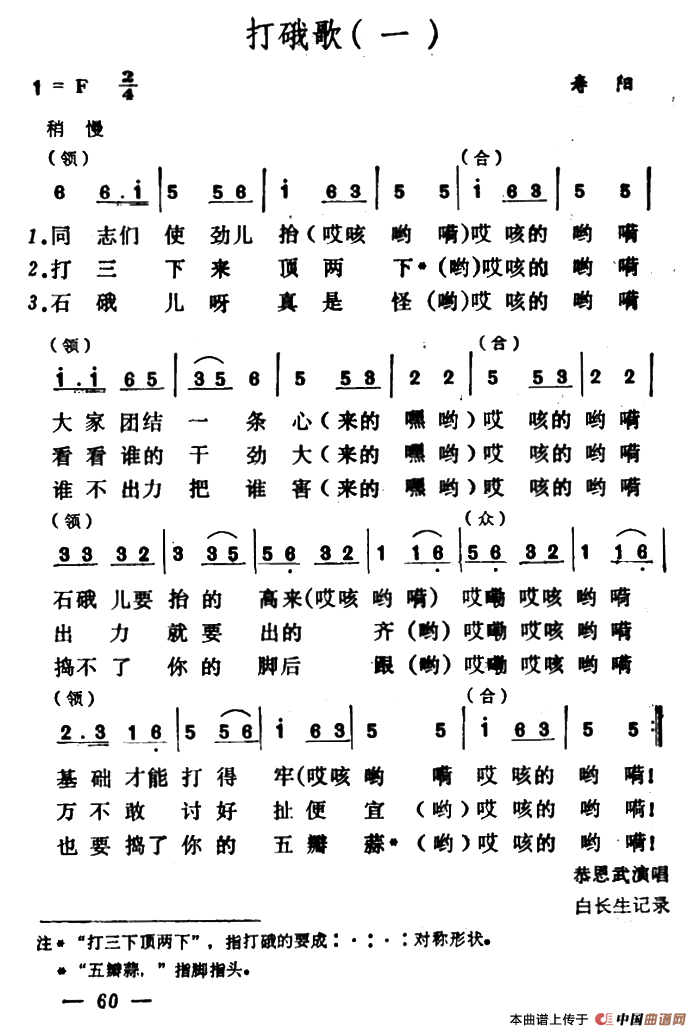 打硪歌(一)
1=F 2/4 寿阳
稍慢
(领) (合)
6 6.i | 5 5 6 | i 6 3 | 5 5 | i 6 3 | 5 5 |
1.同志们使劲儿抬(哎咳哟嗬)哎咳的哟嗬
2.打三下来顶两下*(哟)哎咳的哟嗬
3.石硪儿呀真是怪(哟)哎咳的哟嗬
(领) (合)
i.i 6 5 | 3 5 6 | 5 5 3 | 2 2 | 5 5 3 | 2 2 |
大家团结一条心(来的嘿哟)哎咳的哟嗬
看看谁的干劲大(来的嘿哟)哎咳的哟嗬
谁不出力把谁害(来的嘿哟)哎咳的哟嗬
(领) (众)
3 3 3 2 | 3 3 5 | 5 6 3 2 | 1 1 6 | 5 6 3 2 | 1 1 6 |
石硪儿要抬的高来(哎咳哟嗬)哎嘞哎咳哟嗬
出力就要出的齐(哟)哎嘞哎咳哟嗬
捣不了你的脚后跟(哟)哎嘞哎咳哟嗬
(领) (合)
2.3 1 6 | 5 5 6 | i 6 3 | 5 5 | i 6 3 | 5 5 :|
基础才能打得牢(哎咳哟嗬哎咳的哟嗬!
万不敢讨好扯便宜(哟)哎咳的哟嗬!
也要捣了你的五瓣蒜*(哟)哎咳的哟嗬!
恭恩武演唱
白长生记录
注*“打三下顶两下”,指打硪的要成:·:·:对称形状。
*“五瓣蒜,”指脚指头。
— 60 —
本曲谱上传于 中国曲谱网